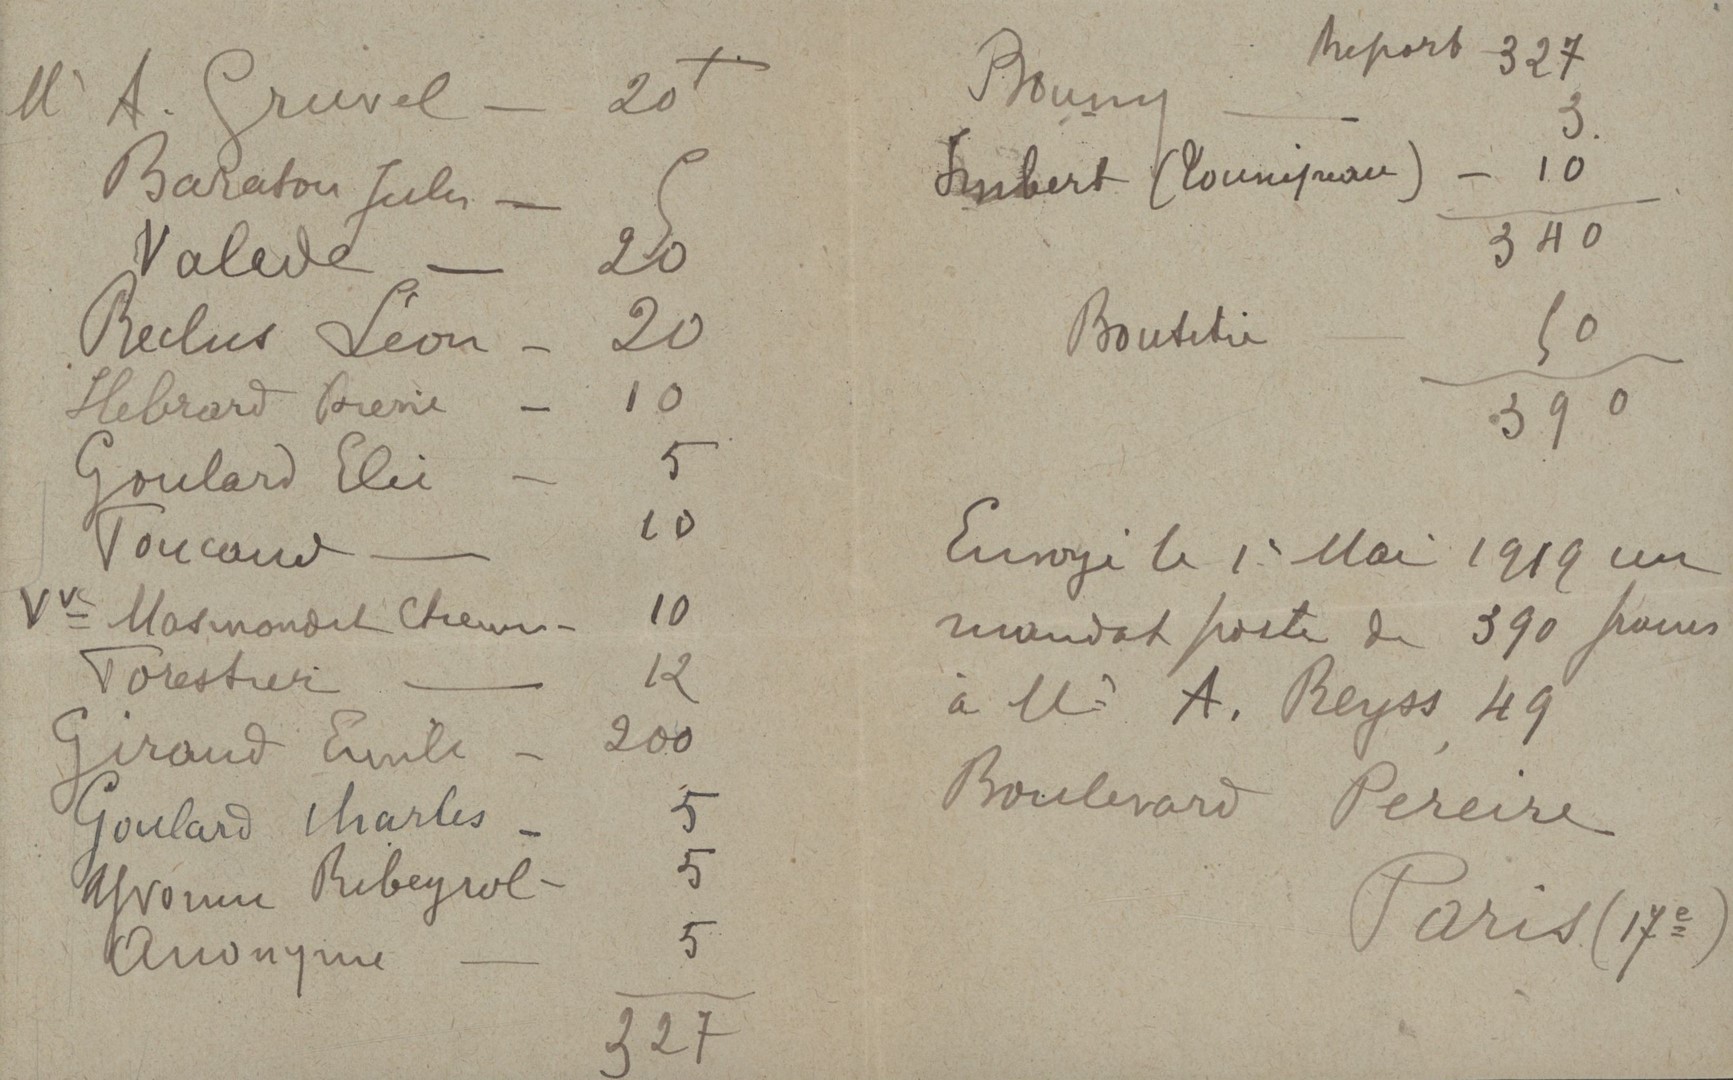 Mr A. Gruvel — 20f
Baraton Jules — 5
Valade — 20
Reclus Léon - 20
Hebrard - 10
Goulard Elie - 5
Toucaud — 10
Vve Masmondet - 10
Forestier — 12
Giraud Emile - 200
Goulard Charles - 5
Yvonne Ribeyrol - 5
Anonyme — 5
327
Report 327
Bouny — 3.
Imbert - 10
340
Boutetie — 50
390
Envoyé le 1er Mai 1919 un
mandat poste de 390 francs
à Mr A. Reyss, 49
Boulevard Pereire
Paris (17e)